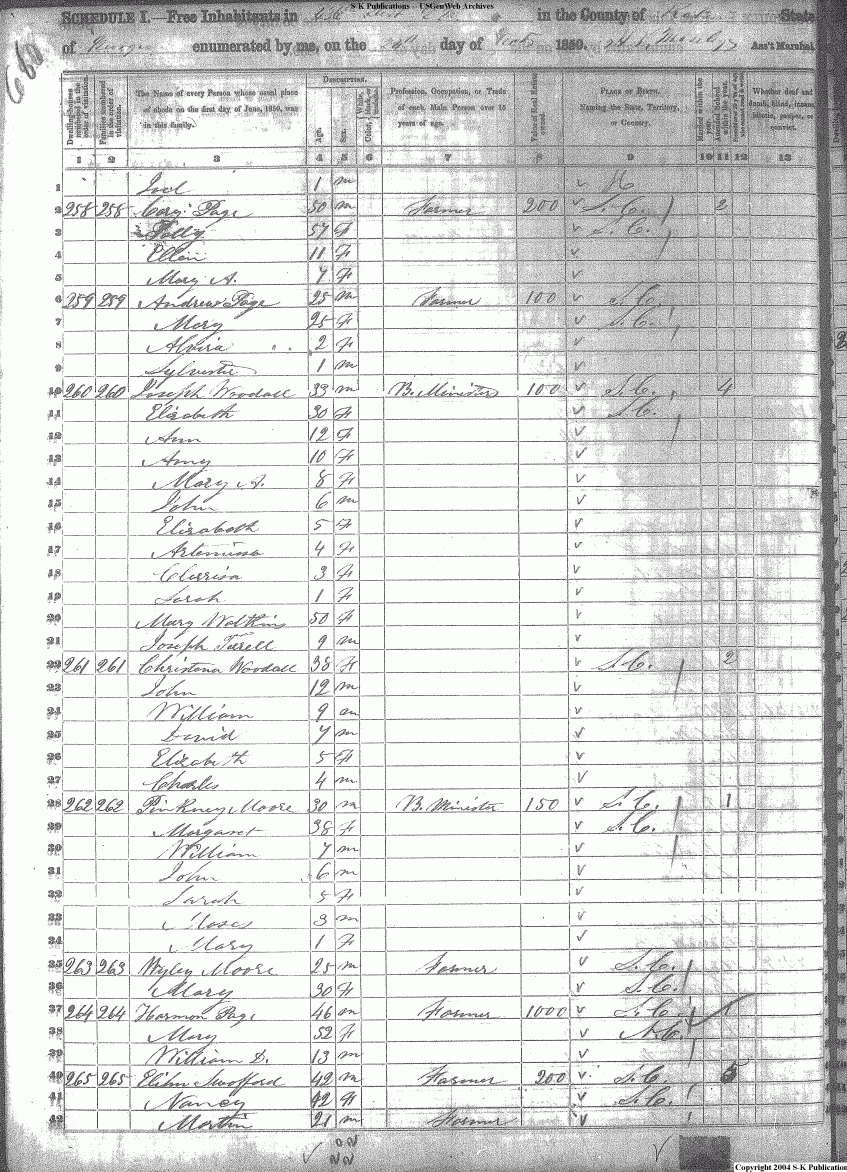 S-K Publications -- USGenWeb Archives
SCHEDULE I.—Free Inhabitants in in the County of State
of enumerated by me, on the day of 1850. Ass't Marshal.
660
Dwelling-houses numbered in the order of visitation.
Families numbered in the order of visitation.
The Name of every Person whose usual place of abode on the first day of June, 1850, was in this family.
DESCRIPTION.
Age.
Sex.
Color, White, black, or mulatto.
Profession, Occupation, or Trade of each Male Person over 15 years of age.
Value of Real Estate owned.
PLACE OF BIRTH. Naming the State, Territory, or Country.
Married within the year.
Attended School within the year.
Whether deaf and dumb, blind, insane, idiotic, pauper, or convict.
1 2 3 4 5 6 7 8 9 10 11 12 13
1 1 m
2 258 258 Page 50 m Farmer 200 S.C. 2
3 Polly 57 F S.C.
4 11 F
5 Mary A. 7 F
6 259 259 Andrew Page 25 m Farmer 100 S.C.
7 Mary 25 F S.C.
8 Alvira 2 F
9 Sylvester 1 m
10 260 260 Joseph Woodall 33 m B. Minister 100 S.C. 4
11 Elizabeth 30 F S.C.
12 Ann 12 F
13 Amy 10 F
14 Mary A. 8 F
15 John 6 m
16 Elizabeth 5 F
17 Artemissa 4 F
18 Clarrisa 3 F
19 Sarah 1 F
20 Mary Watkins 50 F
21 Joseph 9 m
22 261 261 Christena Woodall 38 F S.C. 2
23 John 12 m
24 William 9 m
25 David 7 m
26 Elizabeth 5 F
27 Charles 4 m
28 262 262 Pinkney Moore 30 m B. Minister 150 S.C. 1
29 Margaret 38 F S.C.
30 William 7 m
31 John 6 m
32 Sarah 5 F
33 Moses 3 m
34 Mary 1 F
35 263 263 Wyley Moore 25 m Farmer S.C.
36 Mary 30 F S.C.
37 264 264 Harmon Page 46 m Farmer 1000 S.C. 1
38 Mary 52 F N.C.
39 William D. 13 m
40 265 265 Elihu Swofford 42 m Farmer 200 S.C. 5
41 Nancy 42 F S.C.
42 Martin 21 m Farmer
Copyright 2004 S-K Publication